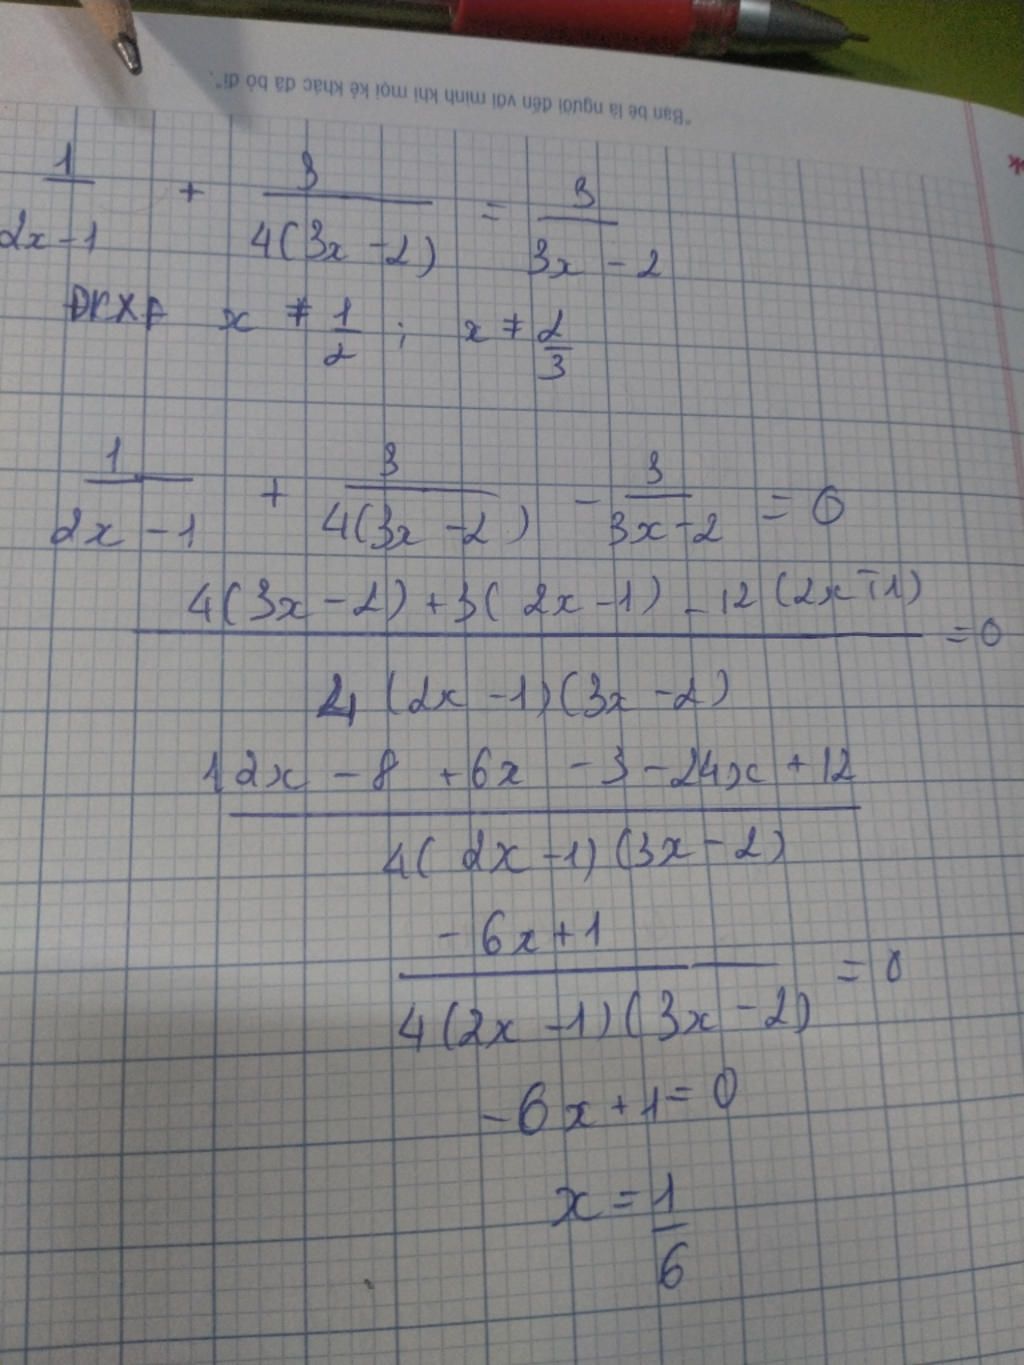 "Bạn bè là người đến với mình khi mọi kẻ khác đã bỏ đi".
1/(2x-1) + 3/(4(3x-2)) = 3/(3x-2)
ĐKXĐ x ≠ 1/2 ; x ≠ 2/3
1/(2x-1) + 3/(4(3x-2)) - 3/(3x-2) = 0
(4(3x-2) + 3(2x-1) - 12(2x-1))/(4(2x-1)(3x-2)) = 0
(12x - 8 + 6x - 3 - 24x + 12)/(4(2x-1)(3x-2))
(-6x+1)/(4(2x-1)(3x-2)) = 0
-6x+1=0
x = 1/6